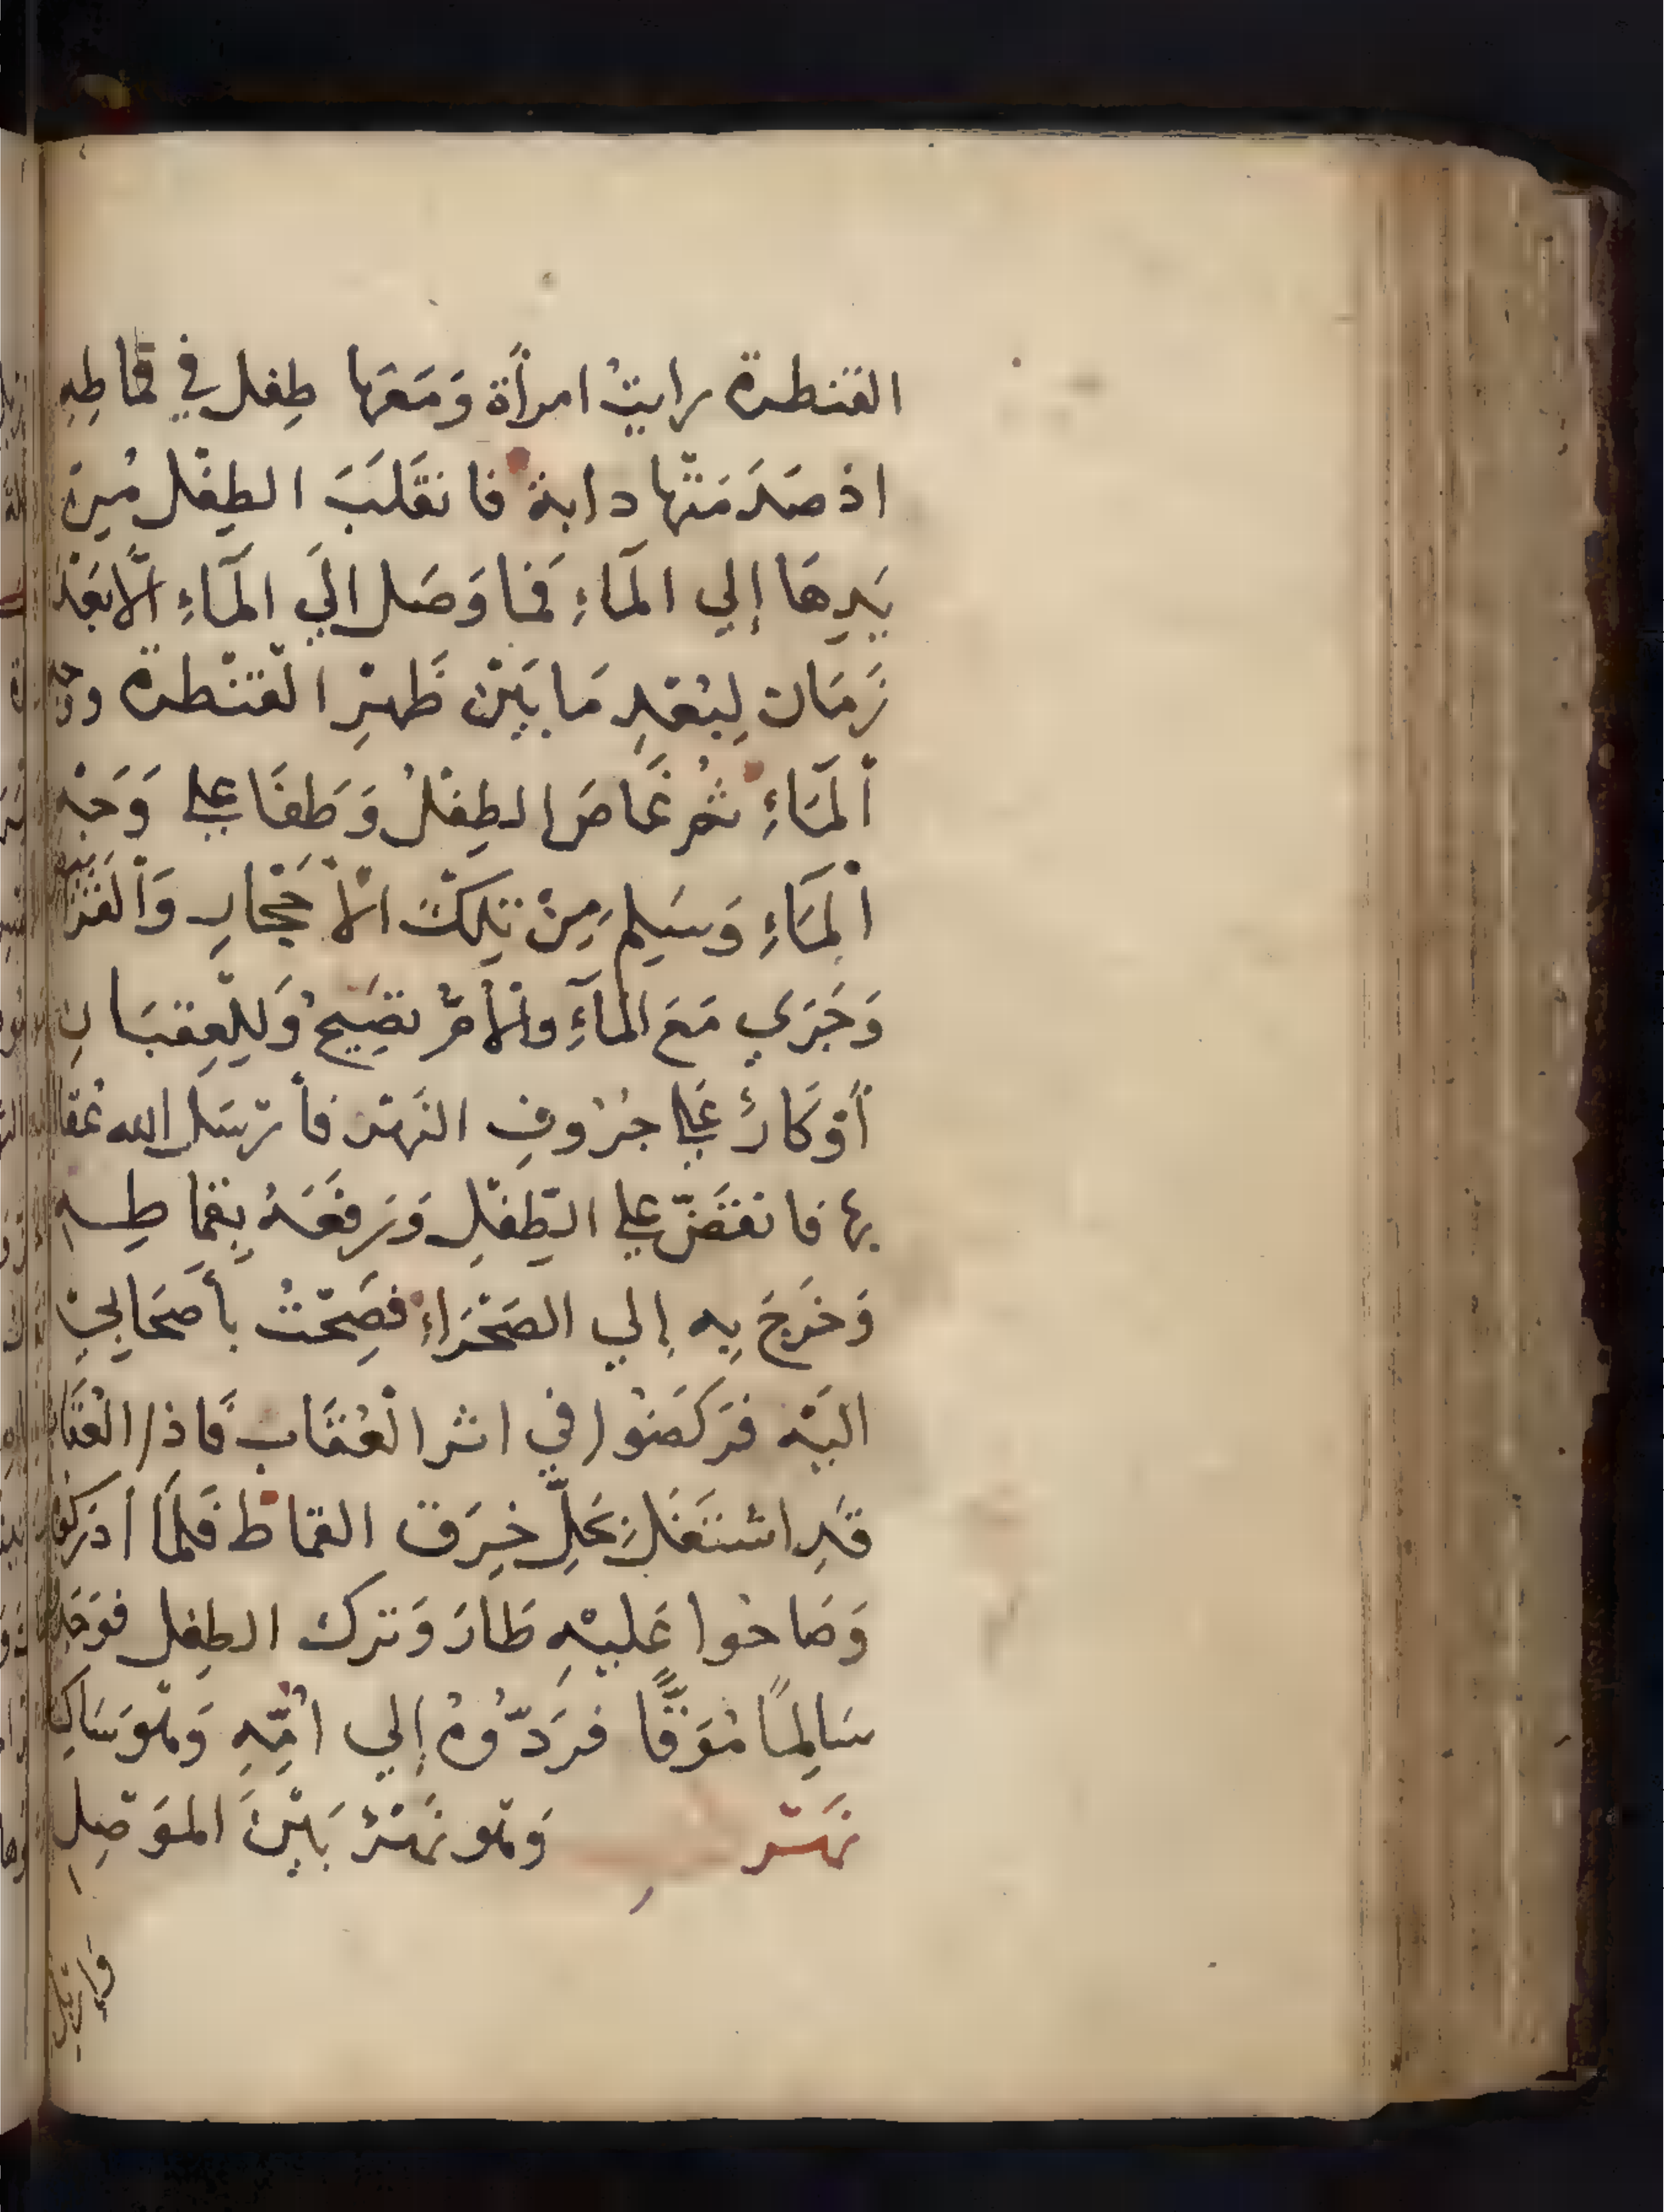 القنطرة رايتُ امرأة وَمَعَها طِفل في قماطِهِ
اذ صَدَمَتْها دابة فانقَلَبَ الطِفْل مُِن
يَدِهَا إلي المَآءِ فَمَا وَصَل الَي المَآءِ الَّا بَعْدَ
زَمَان لِبُعْدِ مَا بَيْن ظَهْرِ الْقَنْطرة
اْلمَآءِ ثمُ غَاصَ الطِفْلُ وَطَفَا علي وَجْهِ
اْلمَآءِ وَسَلِمَ مِنْ تِلكَ الْأَحْجارِ
وَجَرَي مَعَ المآءِ والْأمّ تصِيحُ وَلِلْعِقبَانِ
أوْكَارٌ عَلي جُرُوفِ النَهْر فأرْسَل الله عُقا
بًا فانقَضّ علي الطِّفْلِ وَرَفَعَهُ بِقمَاطِهِ
وَخَرَجَ بِهِ إلي الصَحْرَاءِ فصِحْتُ بأصْحَابِيْ
اليَهْ فرَكَضُوا في اثر الْعُقَاب فَاذا الْعُقَاب
قَدِ اشتَغَلَ بِحَلِّ خِرَق القماط فَلَمَّا أدْرَكوُا
وَصَاحُوا عَليْهِ طَارَ وَترك الطِفل
سَالِمًا مُوَقًّا فرَدّوُهُ إلي امِّهِ وَهْوَ سَاكِت
نَهْر وَهْو نَهْرٌ بَيْنَ الموَصِلِ
وإربل